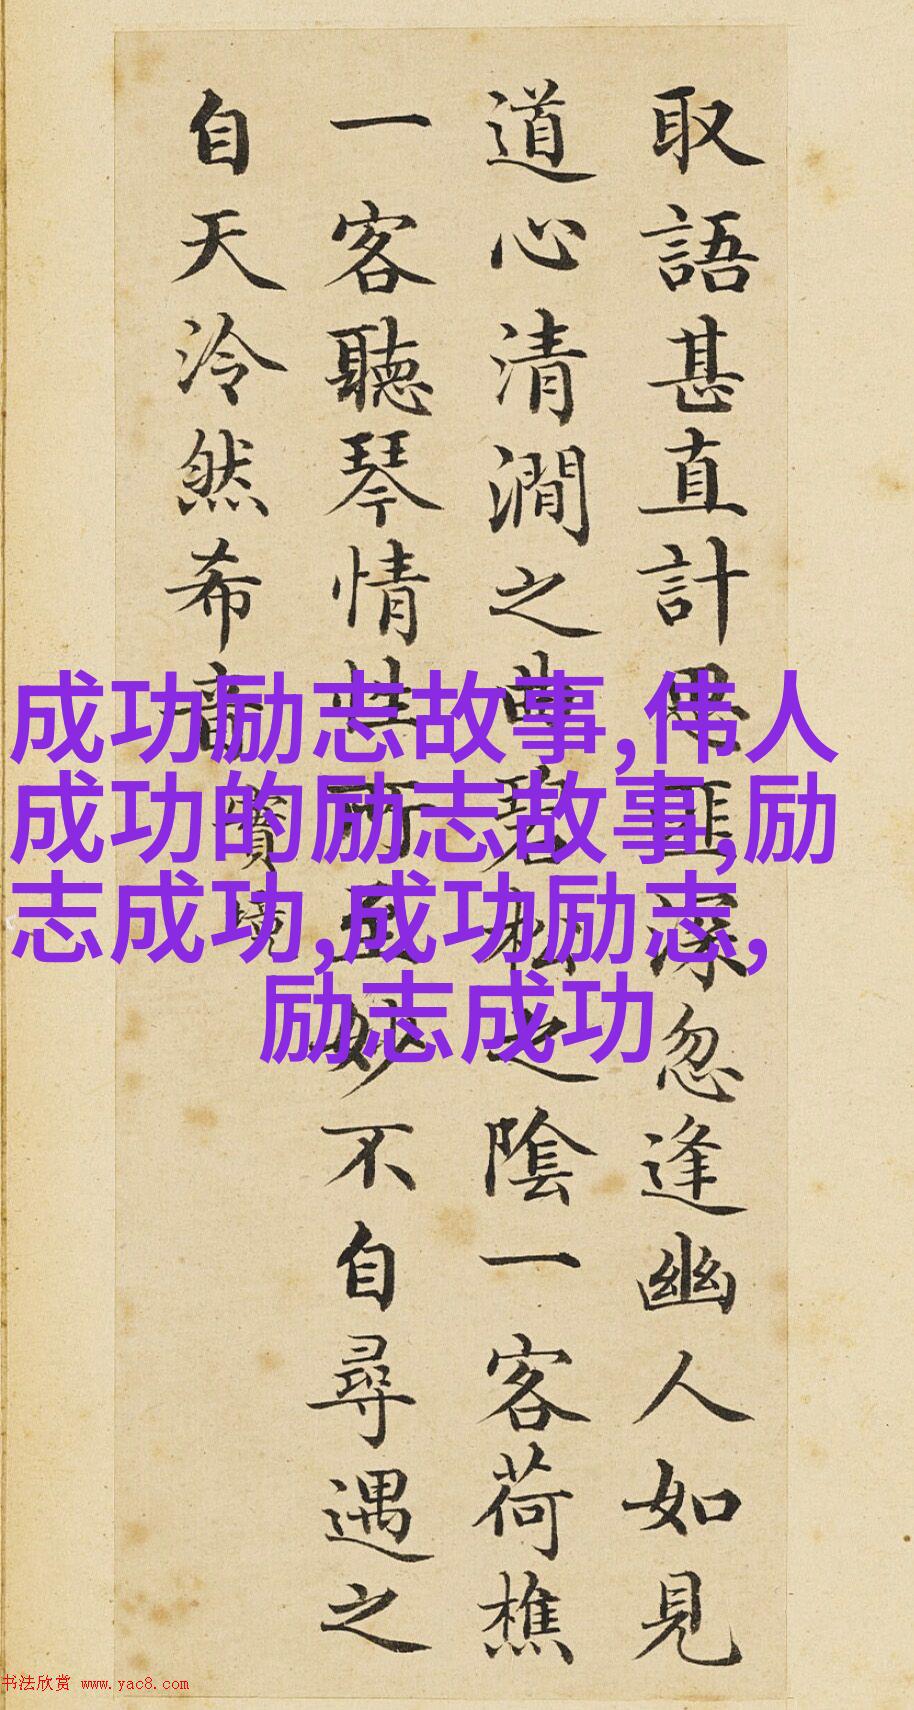 取語甚直計思匪深忽逢幽人如見
道心清澗之曲碧松之陰一客荷樵
一客聽琴情性所至妙不自尋遇之
自天泠然希音
實境
成功励志故事,伟人
成功的励志故事,励
志成功,成功励志,
励志成功
书法欣赏 www.yac8.com